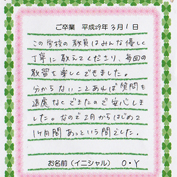 ご卒業 平成29年3月1日
この学校の教員はみんな優しく
丁寧に教えてくださり、毎回の
教習も楽しくできました。
分からないことあれば質問も
遠慮なくできたので安心しま
した。なので2月からはじめて
1ヶ月間あっという間でした。
お名前(イニシャル) O・Y